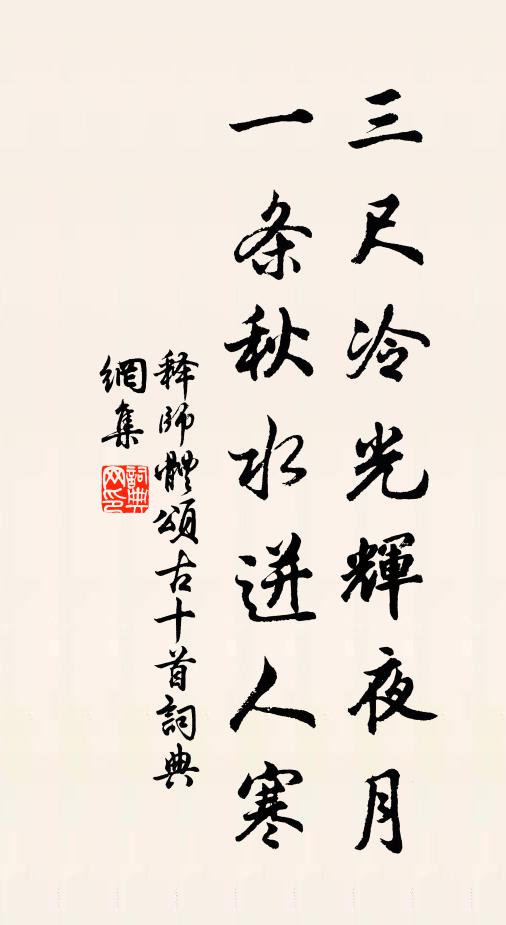 三尺冷光輝夜月
一条秋水迸人寒
释师體頌古十首詞典
網集
詞典
网印